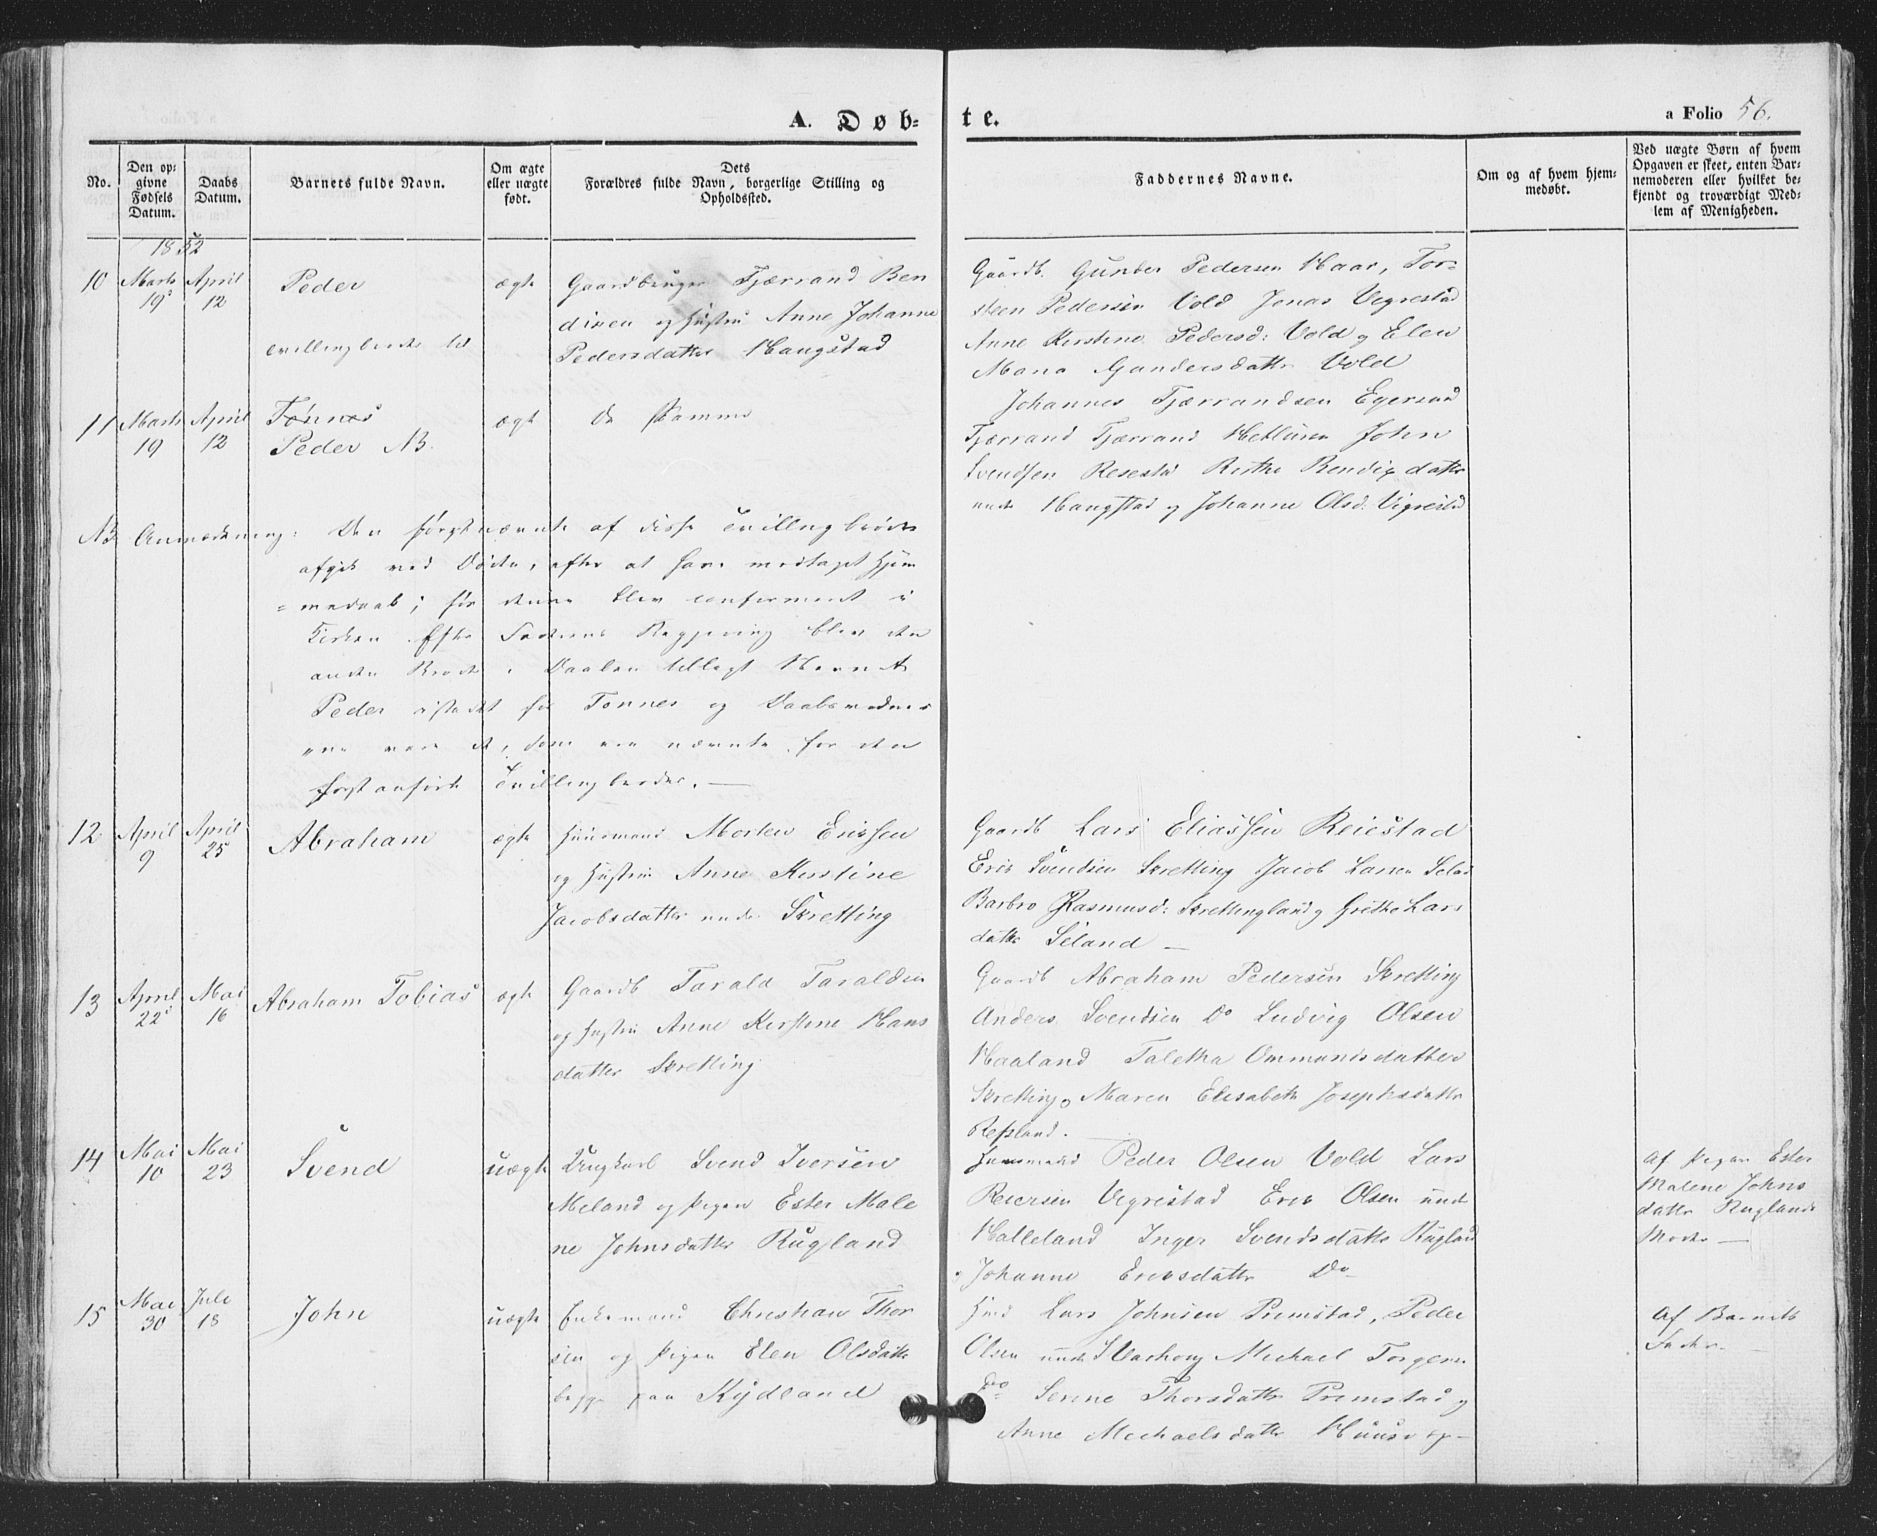 A. Døb-
te.
a Folio 56.
No.
Den op-
givne
Fødsels
Datum.
Daabs
Datum.
Barnets fulde Navn.
Om ægte
eller uægte
født.
Dets
Forældres fulde Navn, borgerlige Stilling og
Opholdssted.
Faddernes Navne.
Om og af hvem hjem-
medøbt.
Ved uægte Børn af hvem
Opgaven er skeet, enten Bar-
nemoderen eller hvilket be-
kjendt og troværdigt Med-
lem af Menigheden.
1852
10
Marts
19
April
12
Peder
tvillingbroder til
ægte
Gaardbruger Tjærrand Ben
dixen og Hustru Anne Johanne
Pedersdatter Haugstad
Gaardb. Gunder Pedersen Haar, Tor-
steen Pedersen Vold Jonas Vegrestad
Anne Kirstine Pedersd: Vold og Elen
Maria Gundersdattr Vold
11
Marts
19
April
12
Tønnes
Peder NB.
ægte
De samme
Johannes Tjærrandsen Egersund
Tjærrand Tjærrand Hetlund John
Svendsen Birthe Bendixdattr
under Haugstad og Johanne Olsd: Vigrestad
NB Anmærkning: Den førstnævnte af disse Tvillingbrødre
afgik ved Døden, efter at have modtaget Hjem
=medaab; før denne blev confirmeret i
Kirken. Efter Faderens Begjering blev den
anden Broder i Daaben tillagt Navnet
Peder istedet for Tønnes og Daabsvidner
ne vare de, som ere nævnte for den
først anførte Tvillingbroder. —
12
April
9
April
25
Abraham
ægte
Huusmand Morten Ericsen
og Hustru Anne Kirstine
Jacobsdatter under Skretting
Gaardb Lars Eliassen Reiestad
Eric Svendsen Skretting Jacob Larsen Selan
Barbro Rasmusd: Skrettingland og Grethe Lars
dattr Seland —
13
April
22
Mai
16
Abraham Tobias
ægte
Gaardb Tarald Taraldsen
og Hustru Anne Kirstine Hans
datter Skretting
Gaardb Abraham Pedersen Skretting
Anders Svendsen Do Ludvig Olsen
Haaland Taletha Ommundsdatter
Skretting o Maren Elisabeth Josephsdattr
Refsland.
14
Mai
10
Mai
23
Svend
uægte
Ungkarl Svend Iversen
Meland og Pigen Ester Male
ne Johnsdatter Rugland
Huusmand Peder Olsen Vold Lars
Reiersen Vegrestad Eric Olsen under
Halleland Inger Svendsdattr Rugland
o Johanne Ericsdattr Do
Af Pigen Ester
Malene Johns
dattr Rugland
Moder —
15
Mai
30
Juli
18
John
uægte
Enkemand Christian Thor
sen og Pigen Elen Olsdattr
begge paa Kydland
Hmd Lars Johnsen Premstad, Peder
Olsen under Michael Torgers
Do Serine Thorsdattr Premstad og
Anne Michaelsdattr
Af Barnets
Fader